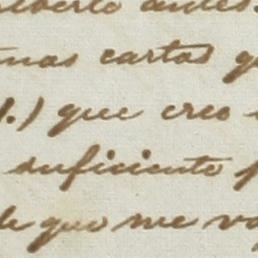 antes.
unas cartas q
.) que creo
suficiente p
de que me va